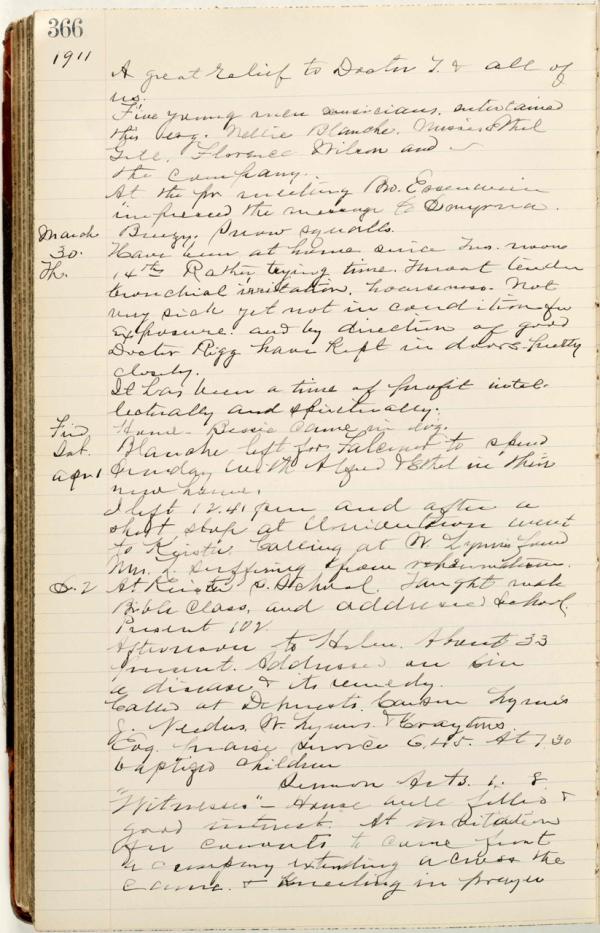 366
1911
A great relief to Doctor T. & all of
us.
Five young men musicians, entertained
this evg. Nellie Blanche, Misses Ethel
Florence Wilson and
the company.
At the pr. meeting Bro. Essenwein
impressed the message to Smyrna.
March Breezy. Snow squalls.
30. Have been at home since Tues. noon
Th. 14th Rather trying time. Throat tender
bronchial irritation, hoarseness. Not
very sick yet not in condition for
exposure. and by direction of good
Doctor Rigg have kept in doors pretty
closely.
It has been a time of profit intel-
lectually and spiritually.
Fri Home - Bessie came in evg.
Sat. Blanche left for to spend
Apr. 1 Sunday with & Ethel in their
new home.
I left 12.41 pm and after a
short stop at Uniontown went
to Keister. Calling at W. Lynn's found
Mrs. L. suffering from rheumatism.
S. 2 At Keister S. School. Taught male
Bible Class, and addressed School.
Present 102.
Afternoon to Helen. About 33
present. Addressed on Sin
a disease & its remedy.
Called at Lynn's
J. W. Lynn's & Crayton's.
Evg. praise service 6.45. At 7.30
baptized children
Sermon Acts. 1. 8.
"Witnesses" - House well filled &
good interest. At invitation
for to come front
a company extending across the
& kneeling in prayer